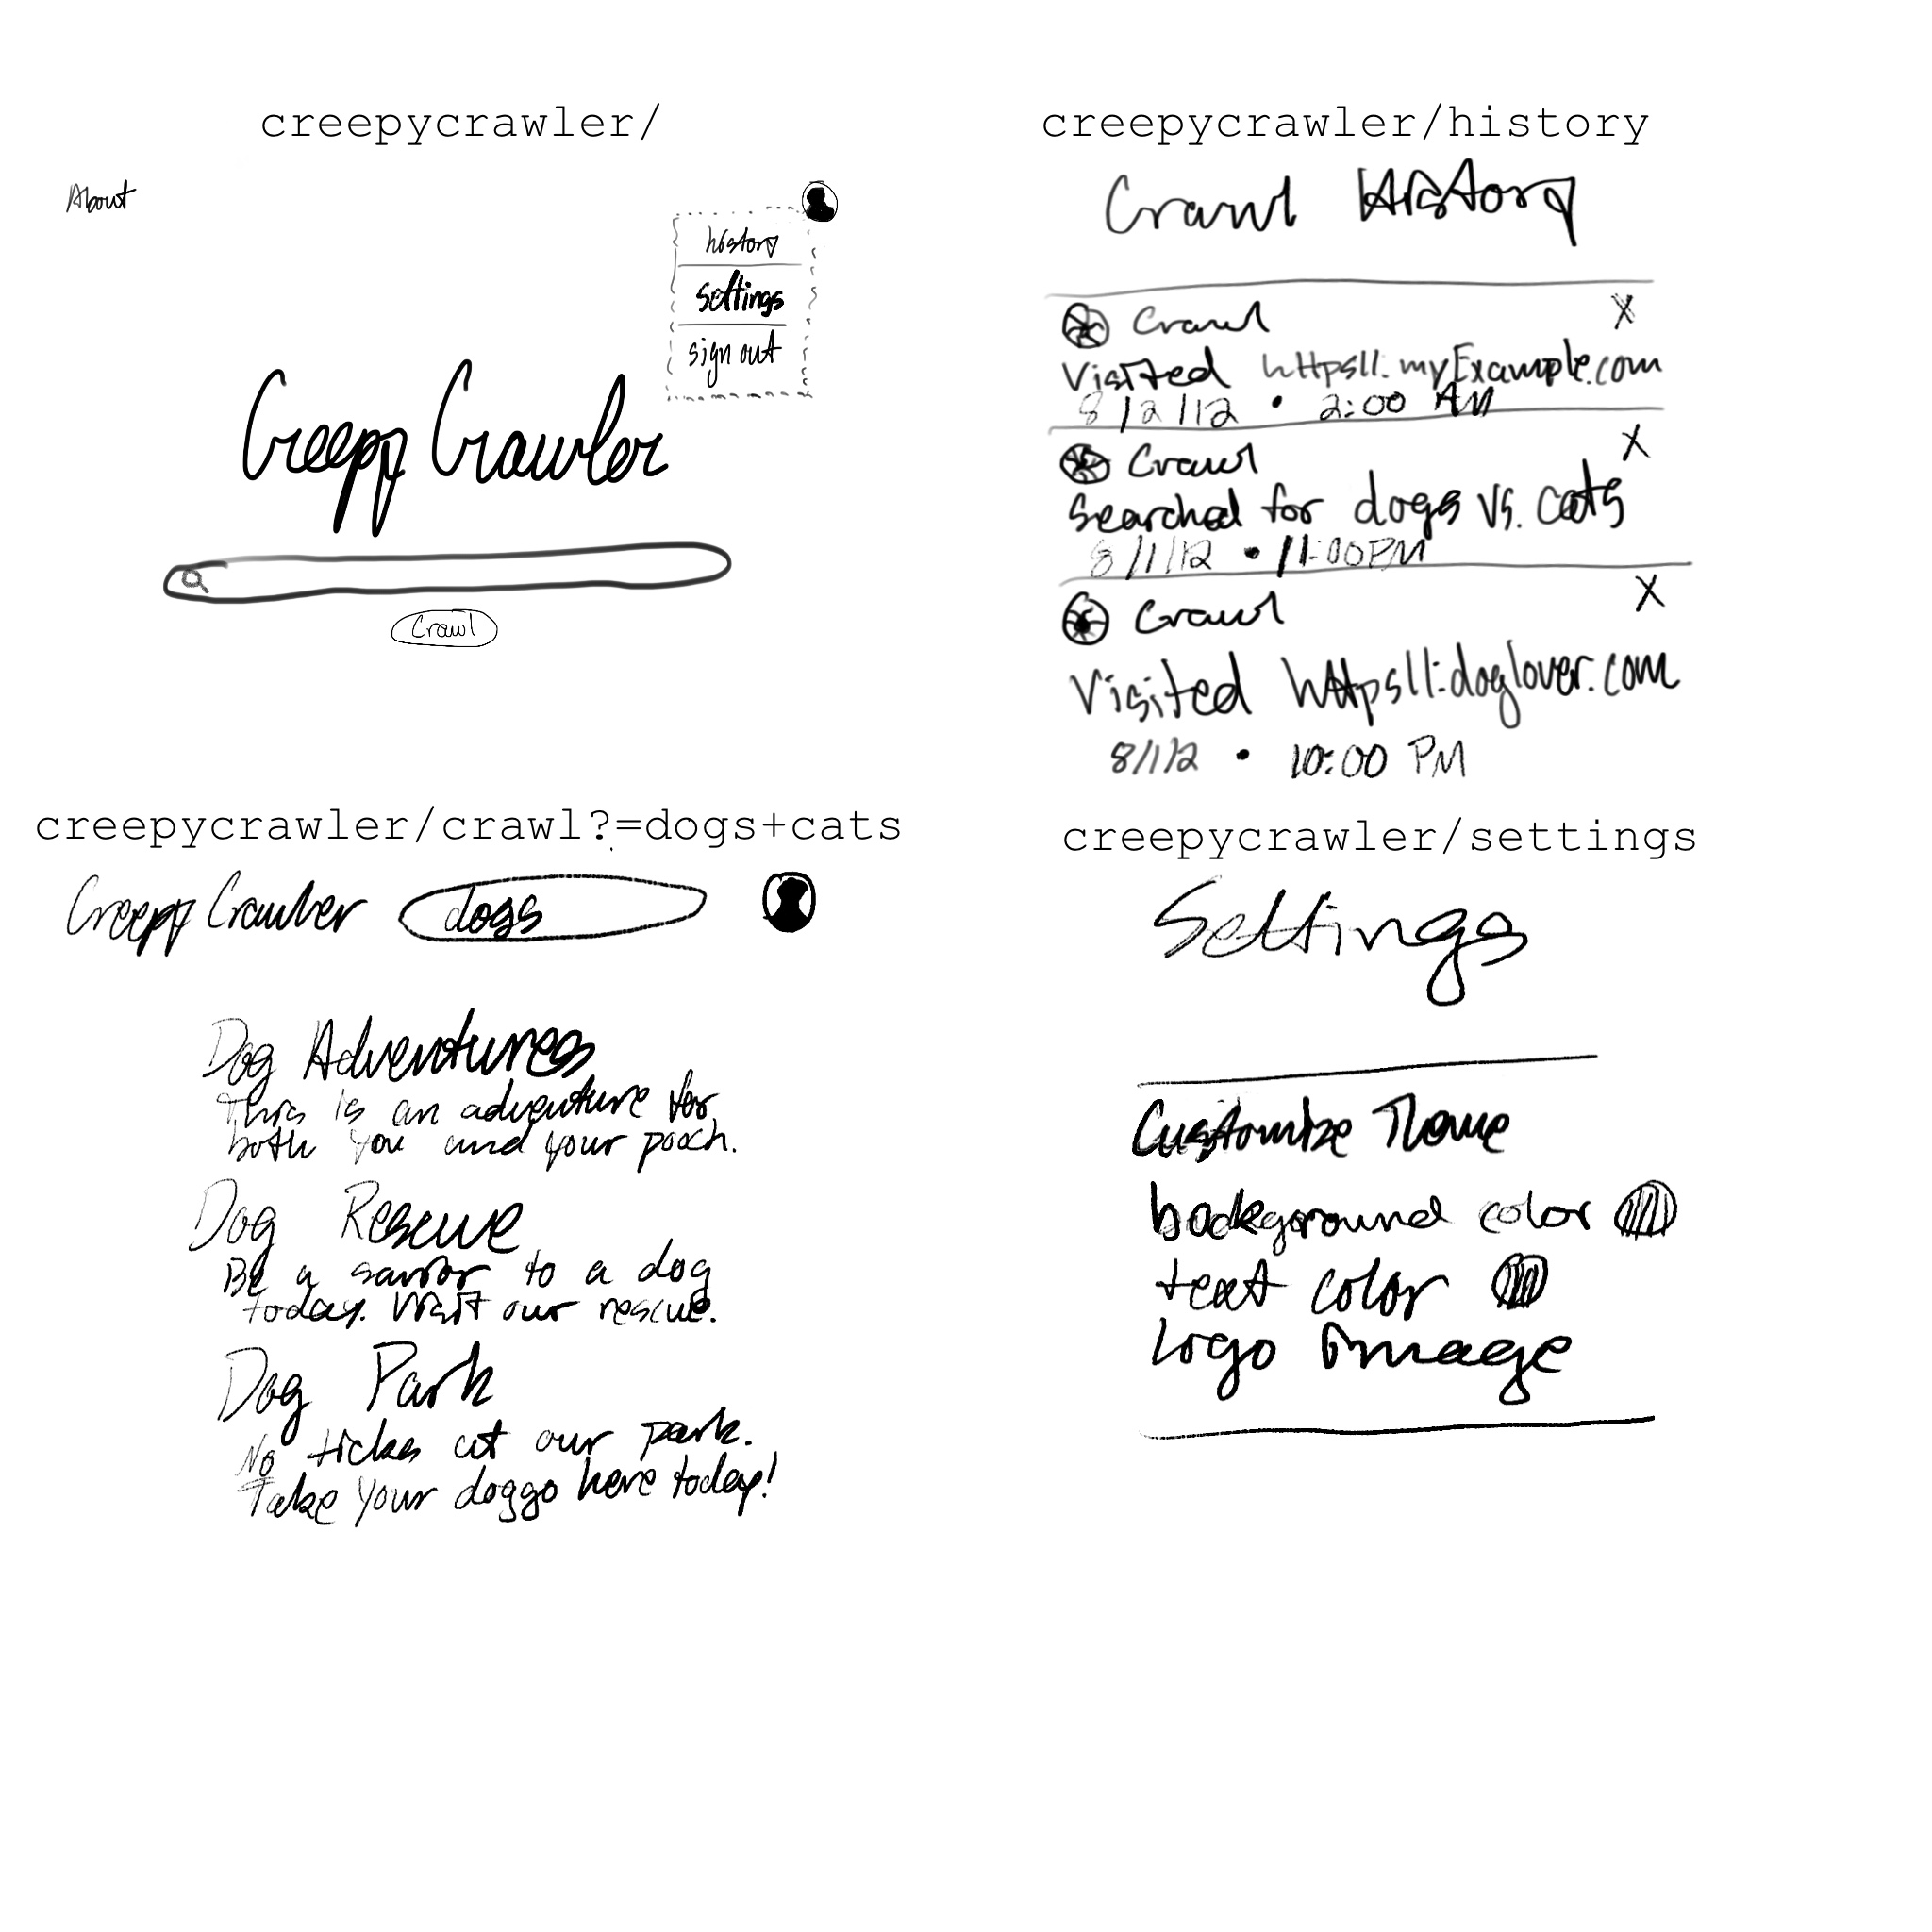 creepycrawler/
About
history
settings
sign out
Creepy Crawler
Crawl
creepycrawler/history
Crawl History
Crawl X
Visited https||:myExample.com
8/2/12 • 2:00 AM
Crawl X
Searched for dogs vs. cats
8/1/12 • 11:00PM
Crawl X
Visited https||:doglover.com
8/1/12 • 10:00 PM
creepycrawler/crawl?=dogs+cats
Creepy Crawler dogs
Dog Adventures
This is an adventure for
both you and your pooch.
Dog Rescue
Be a savior to a dog
today. Visit our rescue.
Dog Park
No ticks at our park.
Take your doggo here today!
creepycrawler/settings
Settings
Customize Theme
background color
text color
Logo Image